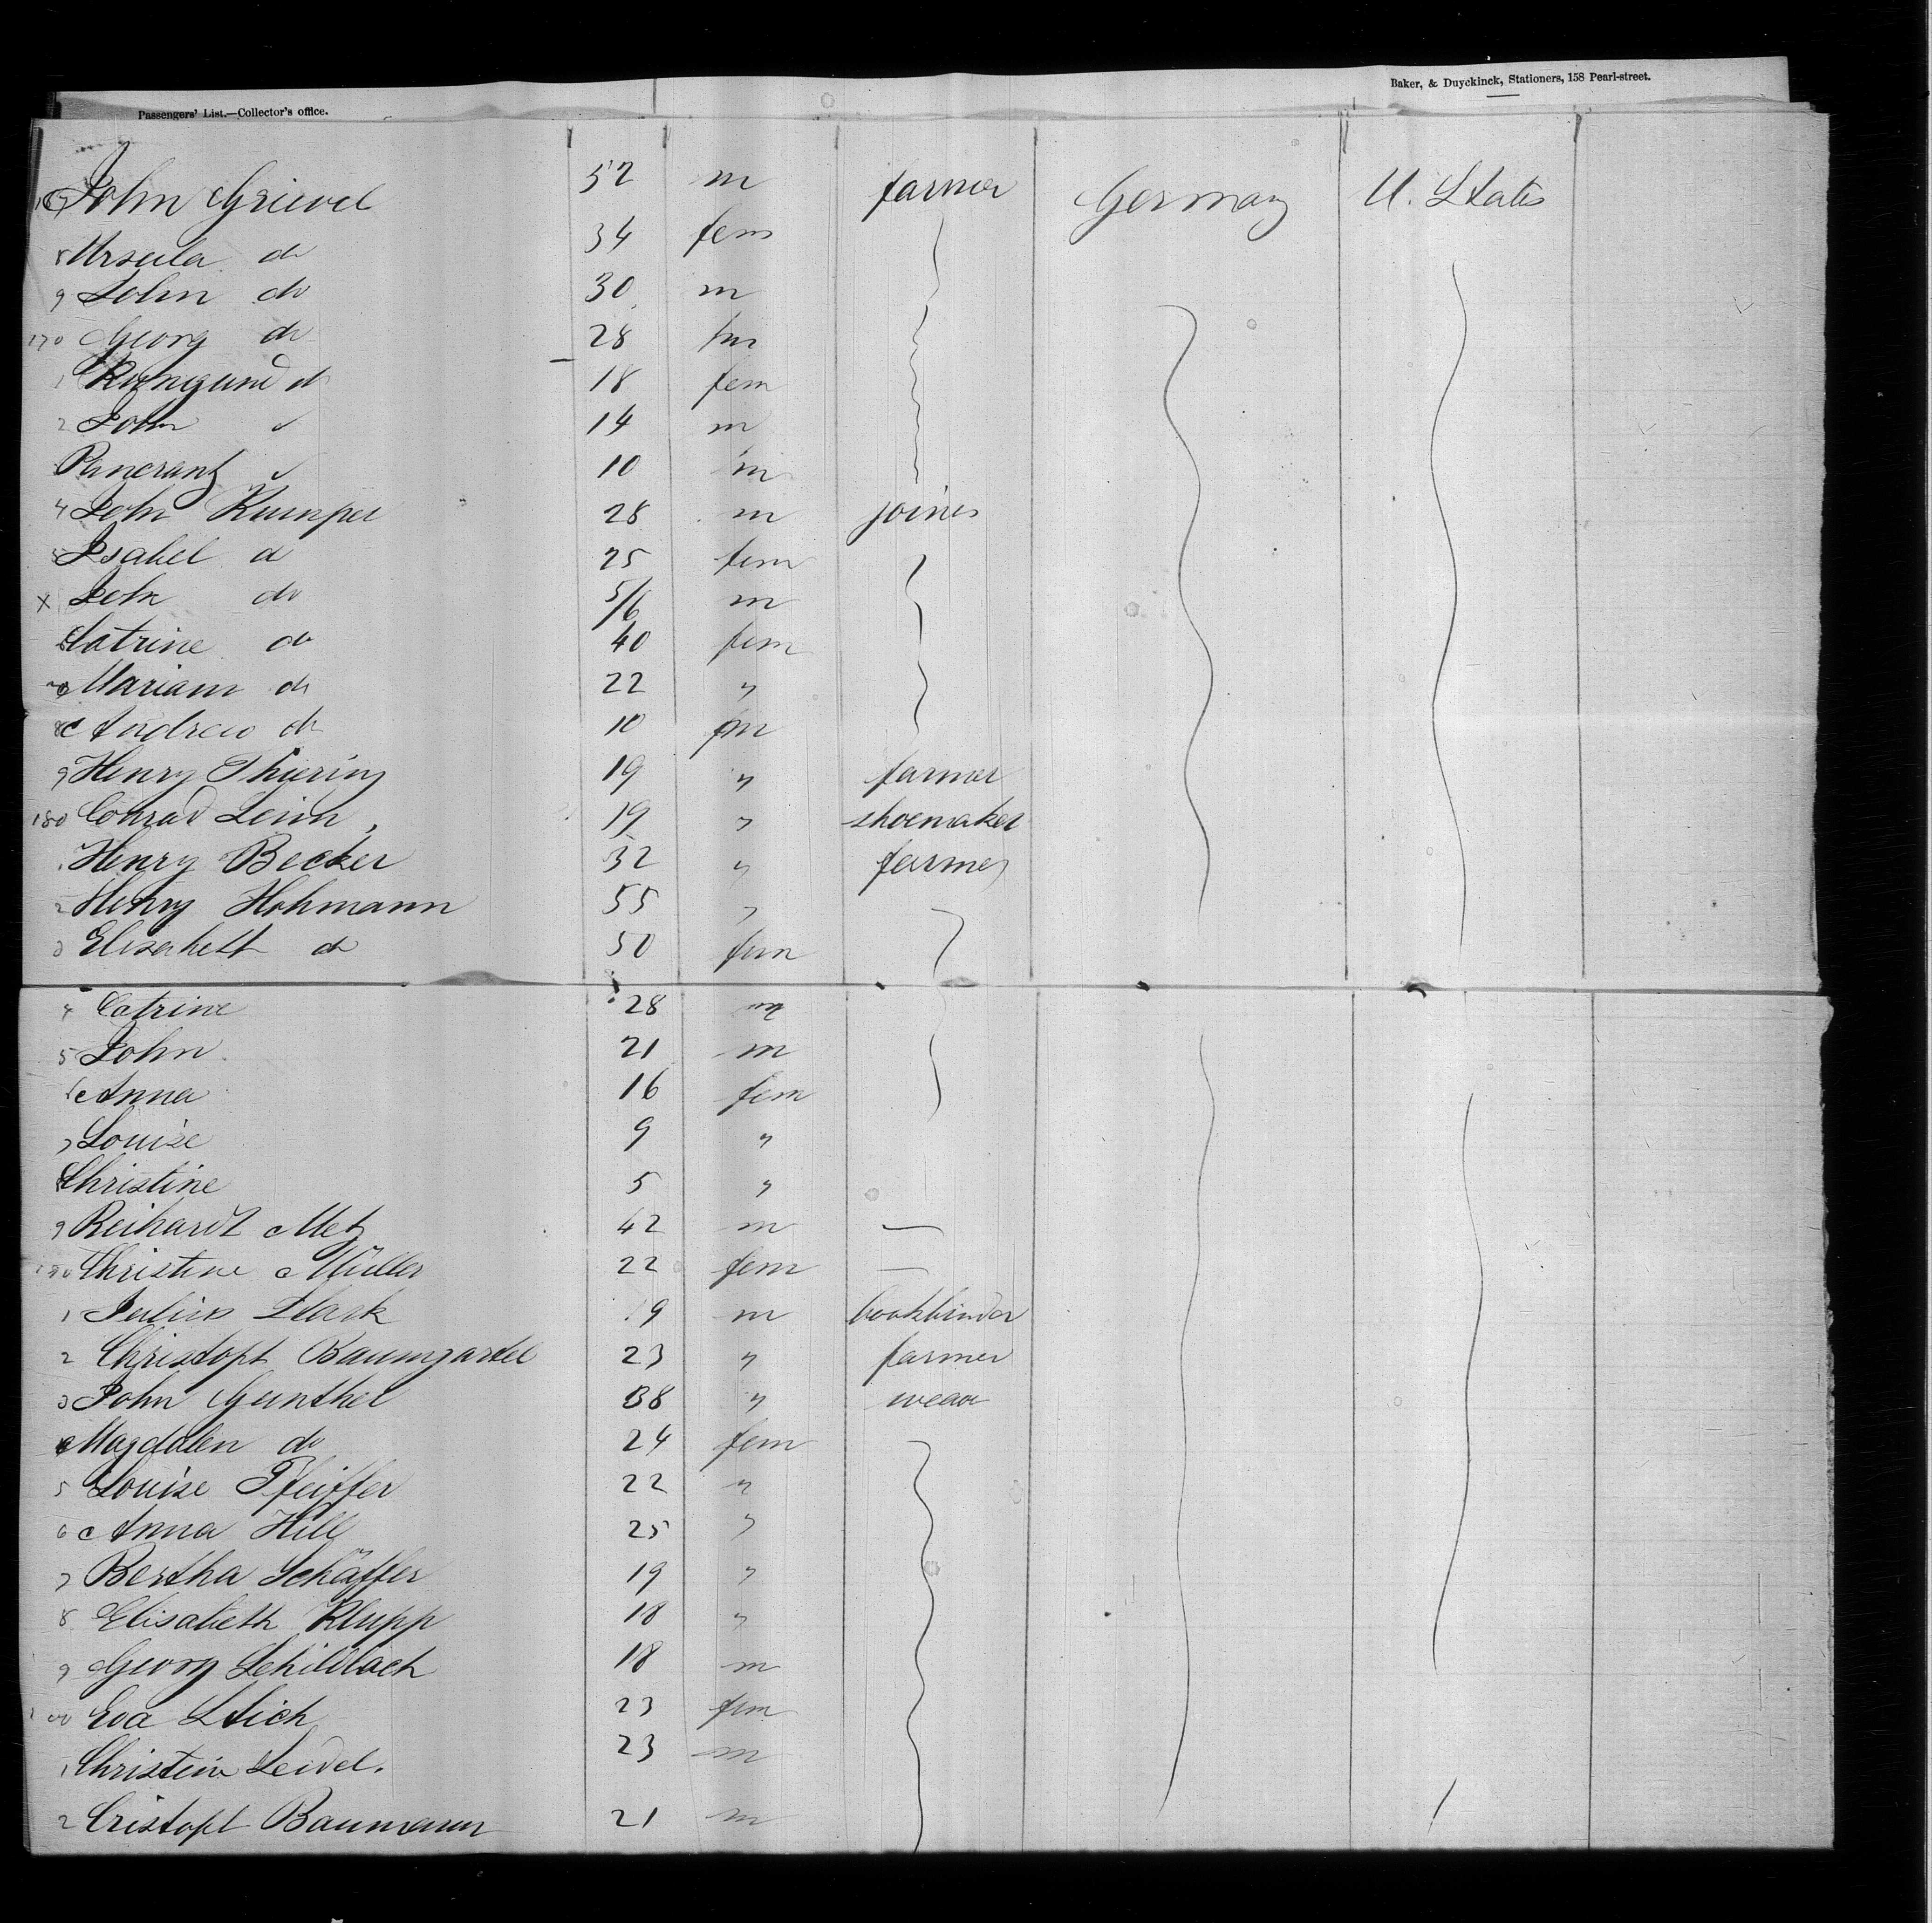 Baker, & Duyckinck, Stationers, 158 Pearl-street.
Passengers' List.—Collector's office.
John Grievel 52 m farmer Germany U. States
8 Ursula do 34 fem
9 John do 30 m
170 Georg do 28 m
1 Kunigund do 18 fem
2 John 14 m
Pancranz 10 m
4 John Kumpel 28 m joiner
5 Isabel do 25 fem
X John do 5/6 m
Catrine do 40 fem
Mariam do 22 "
Andrew do 10 m
9 Henry Thiering 19 " farmer
180 Conrad 19 " shoemaker
Henry Becker 32 " farmer
2 Henry Hohmann 55 "
3 Elisabett do 50 fem
4 Catrine 28 m
5 John 21 m
6 Anna 16 fem
7 Louise 9 "
Christine 5 "
9 Reihardt Metz 42 m —
190 Christine Müller 22 fem —
1 Julius Stark 19 m bookbinder
2 Christoph Baumgartel 23 " farmer
3 John Gunthel 38 " weav
Magdalen do 24 fem
5 Louise Pfeiffer 22 "
6 Anna Hill 25 "
7 Bertha Schäffer 19 "
8 Elisabeth Klupp 18 "
9 Georg Schillbach 18 m
Eva Stich 23 fem
1 Christein Seidel. 23 m
2 Cristoph Baumann 21 m